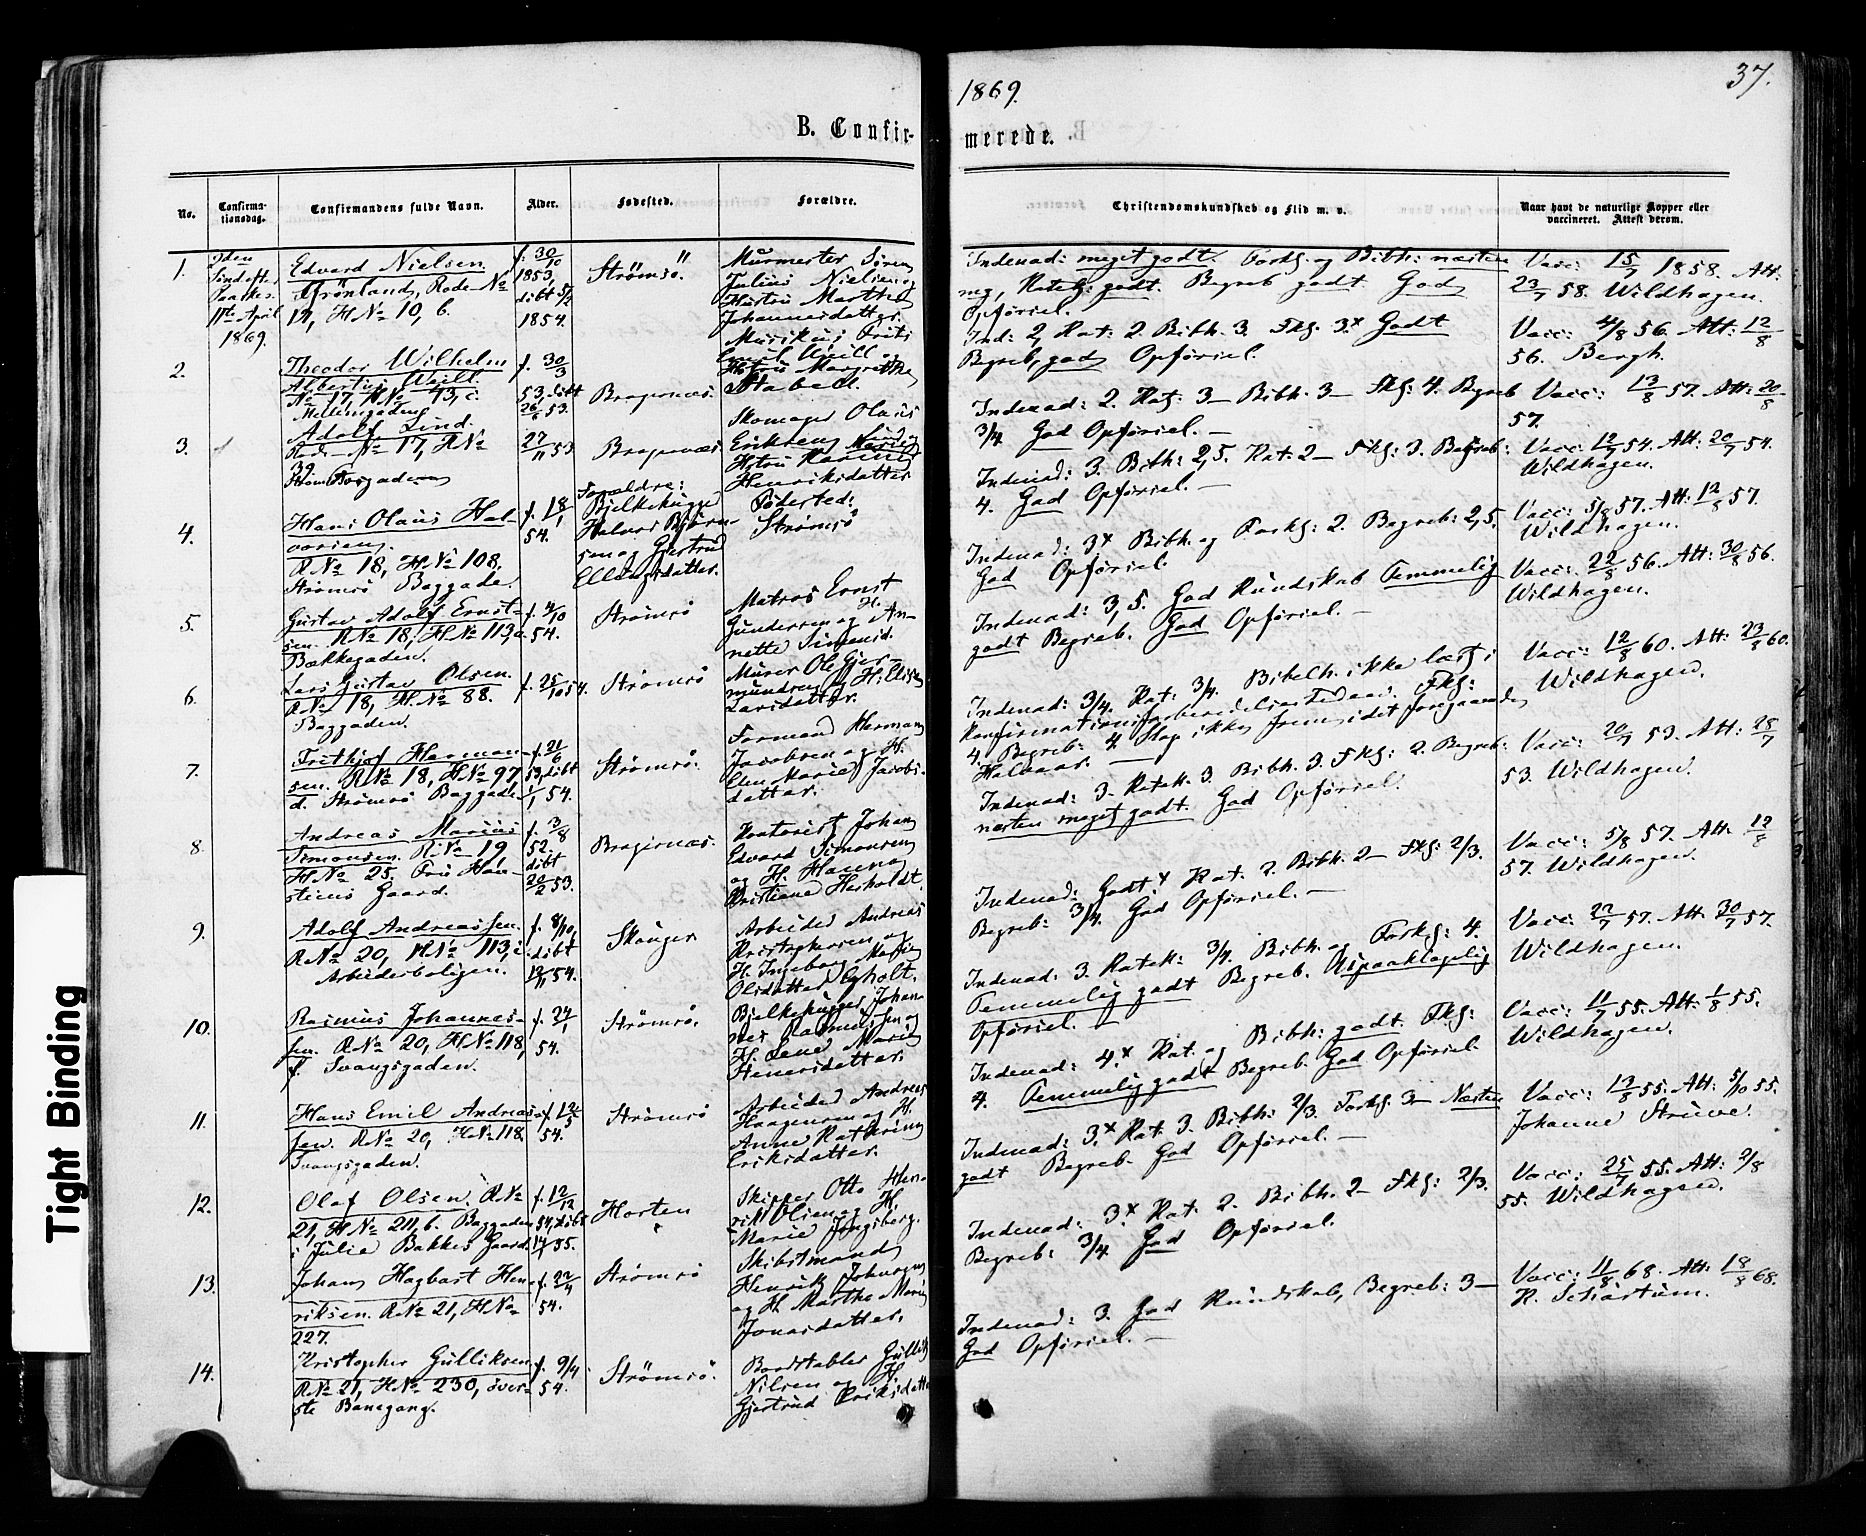 1869.
37.
B. Confir-
merede.
No.
Confirma-
tionsdag.
Confirmandens fulde Navn.
Alder.
Fødested.
Forældre.
Christendomskundskab og Flid m. v.
Naar havt de naturlige Kopper eller
vaccineret. Attest derom.
1.
2den
Söndefter
Paaske
11te April
1869.
Edvard Nielsen.
Grønland, Rode No
17, H No 10, b.
f. 30/10
1853,
döbt 5/2
1854.
Strömsö.
Murmester Sören
Julius Nielsen og
Hustru Marthe
Johannesdatter.
Indenad: meget godt. Forkl. og Bibh: næsten
mg, Katek: godt. Begreb godt God
Opförsel.
Vacc: 15/7 1858. Att.
23/7 58. Wildhagen.
2.
Theodor Wilhelm
Albertus
No 17, H No 43, c.
Mellemgaden
f. 30/3
53, döbt
26/6 53.
Bragernæs.
Musikus Frits
Emil og
Hstru Margrethe
Stabell.
Ind: 2, Kat: 2 Bibh. 3. Fkg: 3.x Godt
Begreb, god Opförsel.
Vacc: 4/8 56. Att: 12/8
56. Bergh.
3.
Adolf Lind.
Rode No 17, H No
39.
27/11 53
Bragernæs
Skomager Olaus
Eriksen Lind og
Hstru Karen
Henriksdatter.
Indenad: 2. Kat: 3– Bibh. 3– Fkg: 4. Begreb
3/4. God Opförsel. –
Vacc: 13/8 57. Att: 20/8
57.
4.
Hans Olaus Hal-
vorsen.
R No 18, H No 108,
Strömsö Baggade.
f. 18/1
54.
Forældre:
Bjelkehugge
Halvor Björn-
sen og Gjertrud
Ellingsdatter.
Födested:
Strömsö
Indenad: 3. Bibh: 2,5. Kat: 2– Fkg: 3. Begreb:
4. God Opförsel. –
Vacc: 12/7 54. Att: 20/7 54.
Wildhagen.
5.
Gustav Adolf Ernst-
sen. R No 18, H No 113, a.
Bækkegaden.
f. 4/10
54.
Strömsö
Matros Ernst
Gundersen og H. An-
nette Simensd.
Indenad: 3x Bibh. og Forkg: 2. Begreb: 2,5.
God Opförsel.
Vacc: 5/8 57. Att: 12/8 57.
Wildhagen.
6.
Lars Gustav Olsen.
R No 18, H. No 88.
Baggaden.
f. 25/10 54.
Strömsö
Murer Ole Gjer-
mundsen og H. Elisa
Larsdatter.
Indenad: 3,5. God Kundskab Temmelig
godt Begreb. God Opförsel. –
Vacc: 22/8 56. Att: 30/8 56.
Wildhagen.
7.
Frithjof Herman-
sen. R No 18, H No 97,
d. Strömsö Baggade
f. 21/6
53, döbt
1/1 54.
Strömsö.
Formand Herman
Jacobsen og H.
Elen Maria Jacobs-
datter.
Indenad: 3/4. Kat: 3/4. Bibelh. ikke læst i
Konfirmationsforberedelsestiden. Fkg:
4. Begreb: 4. Slap ikke frem i det foregaaende
Halvaar. –
Vacc: 12/8 60. Att: 23/8 60.
Wildhagen.
8.
Andreas Marius
Simonsen. R. No 19
H No 25, Fru Han-
steens Gaard.
f. 3/8
52.
döbt
20/2 53.
Bragernæs.
Kontorist Johan
Edvard Simonsen
og H. Hanna
Kristiane Herholdt.
Indenad: 3. Katek. 3. Bibh. 3. Fkg: 2. Begreb:
næsten meget godt. God Opförsel.
Vacc: 20/7 53. Att: 28/7
53. Wildhagen.
9.
Adolf Andreassen.
R No 20, H No 113, c.
Arbeiderboligen.
f. 8/10,
döbt
13/1 54.
Skouger
Arbeider Andreas
Kristophersen og
H. Ingeborg Marie
Olsdatter Egholt.
Indenad: Godt.x Kat. 2. Bibh. 2– Fkg: 2/3.
Begreb: 3/4. God Opförsel. –
Vacc: 5/8 57. Att. 12/8
57. Wildhagen.
10.
Rasmus Johannes-
sen. R No 20, H No 118,
f. Svangsgaden.
f. 24/1
54.
Strömsö.
Bjelkehugger Johan-
nes Rasmussen og
H. Lene Marie
Henersdatter.
Indenad: 3. Katek: 3/4. Bibh. og Forkg: 4.
Temmelig godt Begreb. Upaaklagelig
Opförsel. –
Vacc: 22/7 57. Att: 30/7 57.
Wildhagen.
11.
Hans Emil Andreas-
sen. R No 20, H No 118.
Svangsgaden.
f. 12/5
54.
Strömsö
Arbeider Andreas
Haagensen og H.
Anne Kathrine
Eriksdatter.
Indenad: 4.x Kat. og Bibh: godt. Fkg:
4. Temmelig godt Begreb. God Opförsel.
Vacc: 11/7 55. Att: 1/8 55.
Wildhagen.
12.
Olaf Olsen. R No
21, H No 211, b. Baggaden
i Julie Bakkes Gaard.
f. 12/12
54, döbt
55.
Horten
Skipper Otto Hen-
rik Olsen og H.
Marie Jongsberg.
Indenad: 3.x Kat: 3. Bibh: 2/3. Forkg. 3– Næsten
godt Begreb. God Opförsel. –
Vacc: 13/8 55. Att: 5/10 55.
Johanne Struwe.
13.
Johan Hagbart Hen-
riksen. R No 21, H No
227.
f. 22/4
54.
Strömsö
Skibstmand
Henrik Johnsen
og H. Marthe Marie
Jonasdatter.
Indenad: 3.x Kat: 2. Bibh. 2– Fkg: 2/3.
Begreb: 3/4. God Opförsel.
Vacc: 25/7 55. Att: 2/8
55. Wildhagen.
14.
Kristopher Gulliksen
R No 21, H No 230, över-
ste Banegang.
f. 9/4
54.
Strömsö.
Bordstabler Gullik
Nilsen og H.
Gjertrud Eriksdatter
Indenad: 3. God Kundskab, Begreb: 3–
God Opförsel. –
Vacc: 11/8 68. Att: 18/8 68.
K. Schiørtum.
Tight Binding